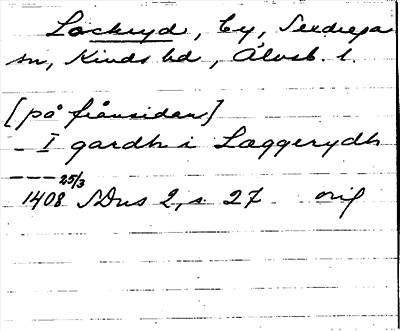 Lockryd, by, Sexdrega
sn, Kinds hd, Älvsb. l.
[på frånsidan]
- I gardh i Læggerydh
--- 25/3
1408 SDns 2, s. 27 orig